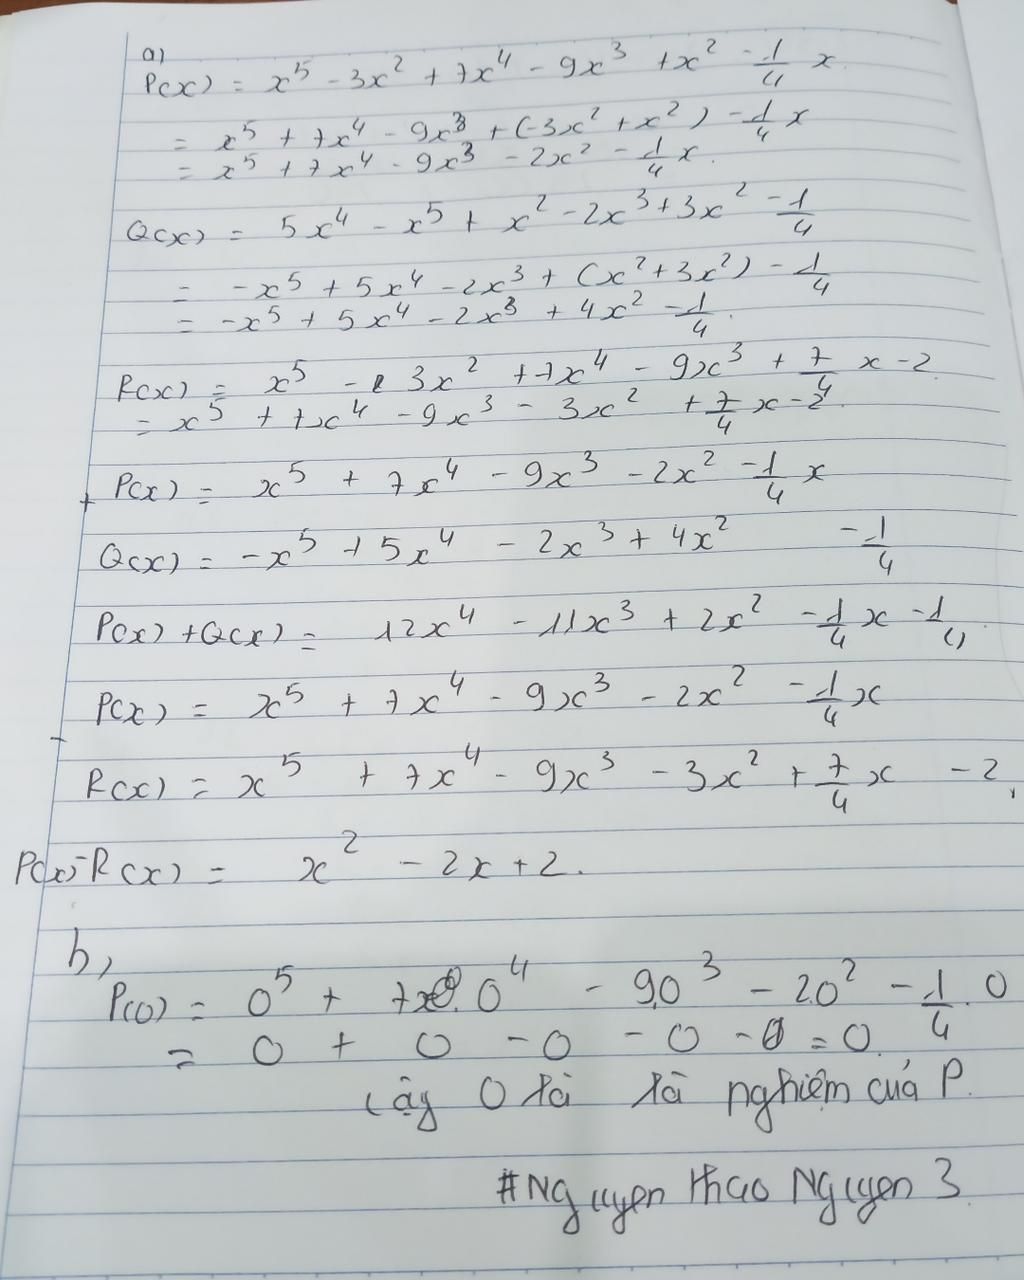 a)
P(x) = x⁵ - 3x² + 7x⁴ - 9x³ + x² - 1/4 x
= x⁵ + 7x⁴ - 9x³ + (-3x² + x²) - 1/4 x
= x⁵ + 7x⁴ - 9x³ - 2x² - 1/4 x.
Q(x) = 5x⁴ - x⁵ + x² - 2x³ + 3x² - 1/4
= -x⁵ + 5x⁴ - 2x³ + (x² + 3x²) - 1/4
= -x⁵ + 5x⁴ - 2x³ + 4x² - 1/4.
R(x) = x⁵ - 3x² + 7x⁴ - 9x³ + 7/4 x - 2
= x⁵ + 7x⁴ - 9x³ - 3x² + 7/4 x - 2.
+ P(x) = x⁵ + 7x⁴ - 9x³ - 2x² - 1/4 x
Q(x) = -x⁵ + 5x⁴ - 2x³ + 4x² - 1/4
P(x) + Q(x) = 12x⁴ - 11x³ + 2x² - 1/4 x - 1/4
P(x) = x⁵ + 7x⁴ - 9x³ - 2x² - 1/4 x
-
R(x) = x⁵ + 7x⁴ - 9x³ - 3x² + 7/4 x - 2
P(x) - R(x) = x² - 2x + 2.
b,
P(0) = 0⁵ + 7.0⁴ - 9.0³ - 2.0² - 1/4 . 0
= 0 + 0 - 0 - 0 - 0 = 0.
Vậy 0 là là nghiệm của P.
#Nguyen thao Nguyen 3